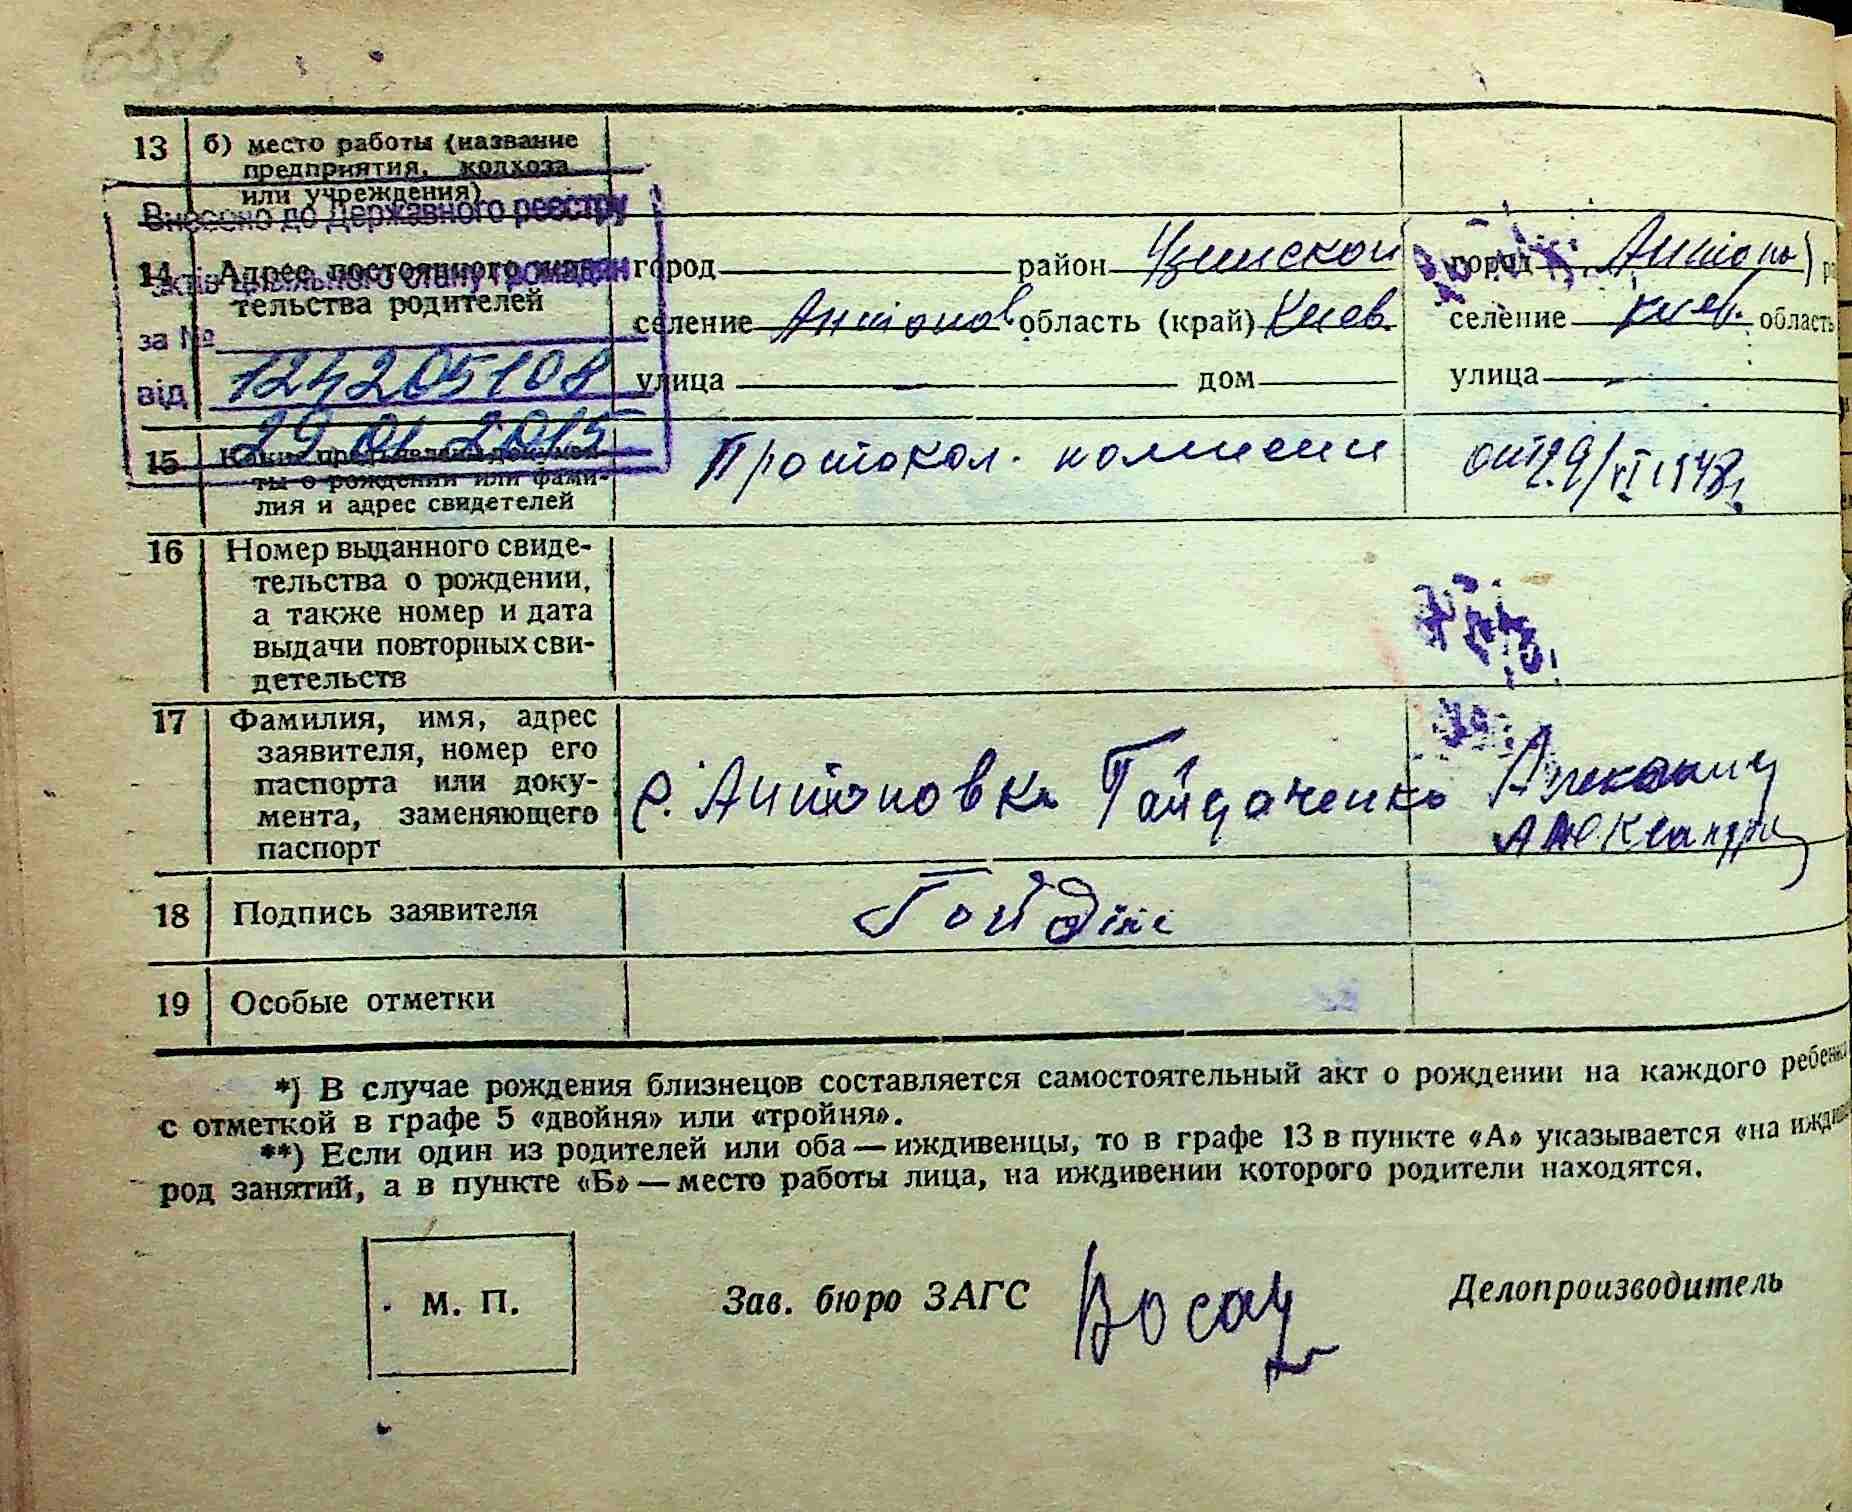 13 б) место работы (название
предприятия, колхоза
или учреждения)
Внесено до Державного реєстру
актів цивільного стану громадян
за №
124205108
від
29.01.2015
14 Адрес постоянного жи-
тельства родителей
город район Узинской
селение Антонов область (край) Киев
улица дом
город
селение Киев. область
улица
15 Какие пред'явлены докумен-
ты о рождении или фами-
лия и адрес свидетелей
Протокол. комисии от 29/VI 1948
16 Номер выданного свиде-
тельства о рождении,
а также номер и дата
выдачи повторных сви-
детельств
17 Фамилия, имя, адрес
заявителя, номер его
паспорта или доку-
мента, заменяющего
паспорт
с. Антоновка Гайдаченко
18 Подпись заявителя
19 Особые отметки
*) В случае рождения близнецов составляется самостоятельный акт о рождении на каждого ребенка
с отметкой в графе 5 «двойня» или «тройня».
**) Если один из родителей или оба — иждивенцы, то в графе 13 в пункте «А» указывается «на
род занятий, а в пункте «Б» — место работы лица, на иждивении которого родители находятся.
М. П.
Зав. бюро ЗАГС
Делопроизводитель